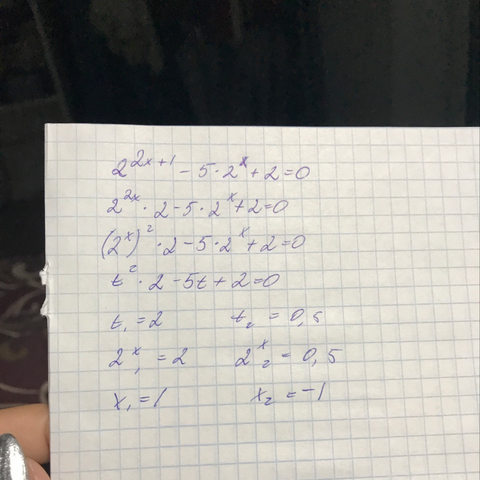 2^{2x+1} - 5·2^x + 2 = 0
2^{2x}·2 - 5·2^x + 2 = 0
(2^x)^2·2 - 5·2^x + 2 = 0
t^2·2 - 5t + 2 = 0
t_1 = 2 t_2 = 0,5
2^x_1 = 2 2^x_2 = 0,5
x_1 = 1 x_2 = -1